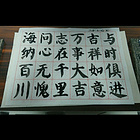 与时俱进
吉祥如意
万事大吉
志在千里
问心无愧
海纳百川